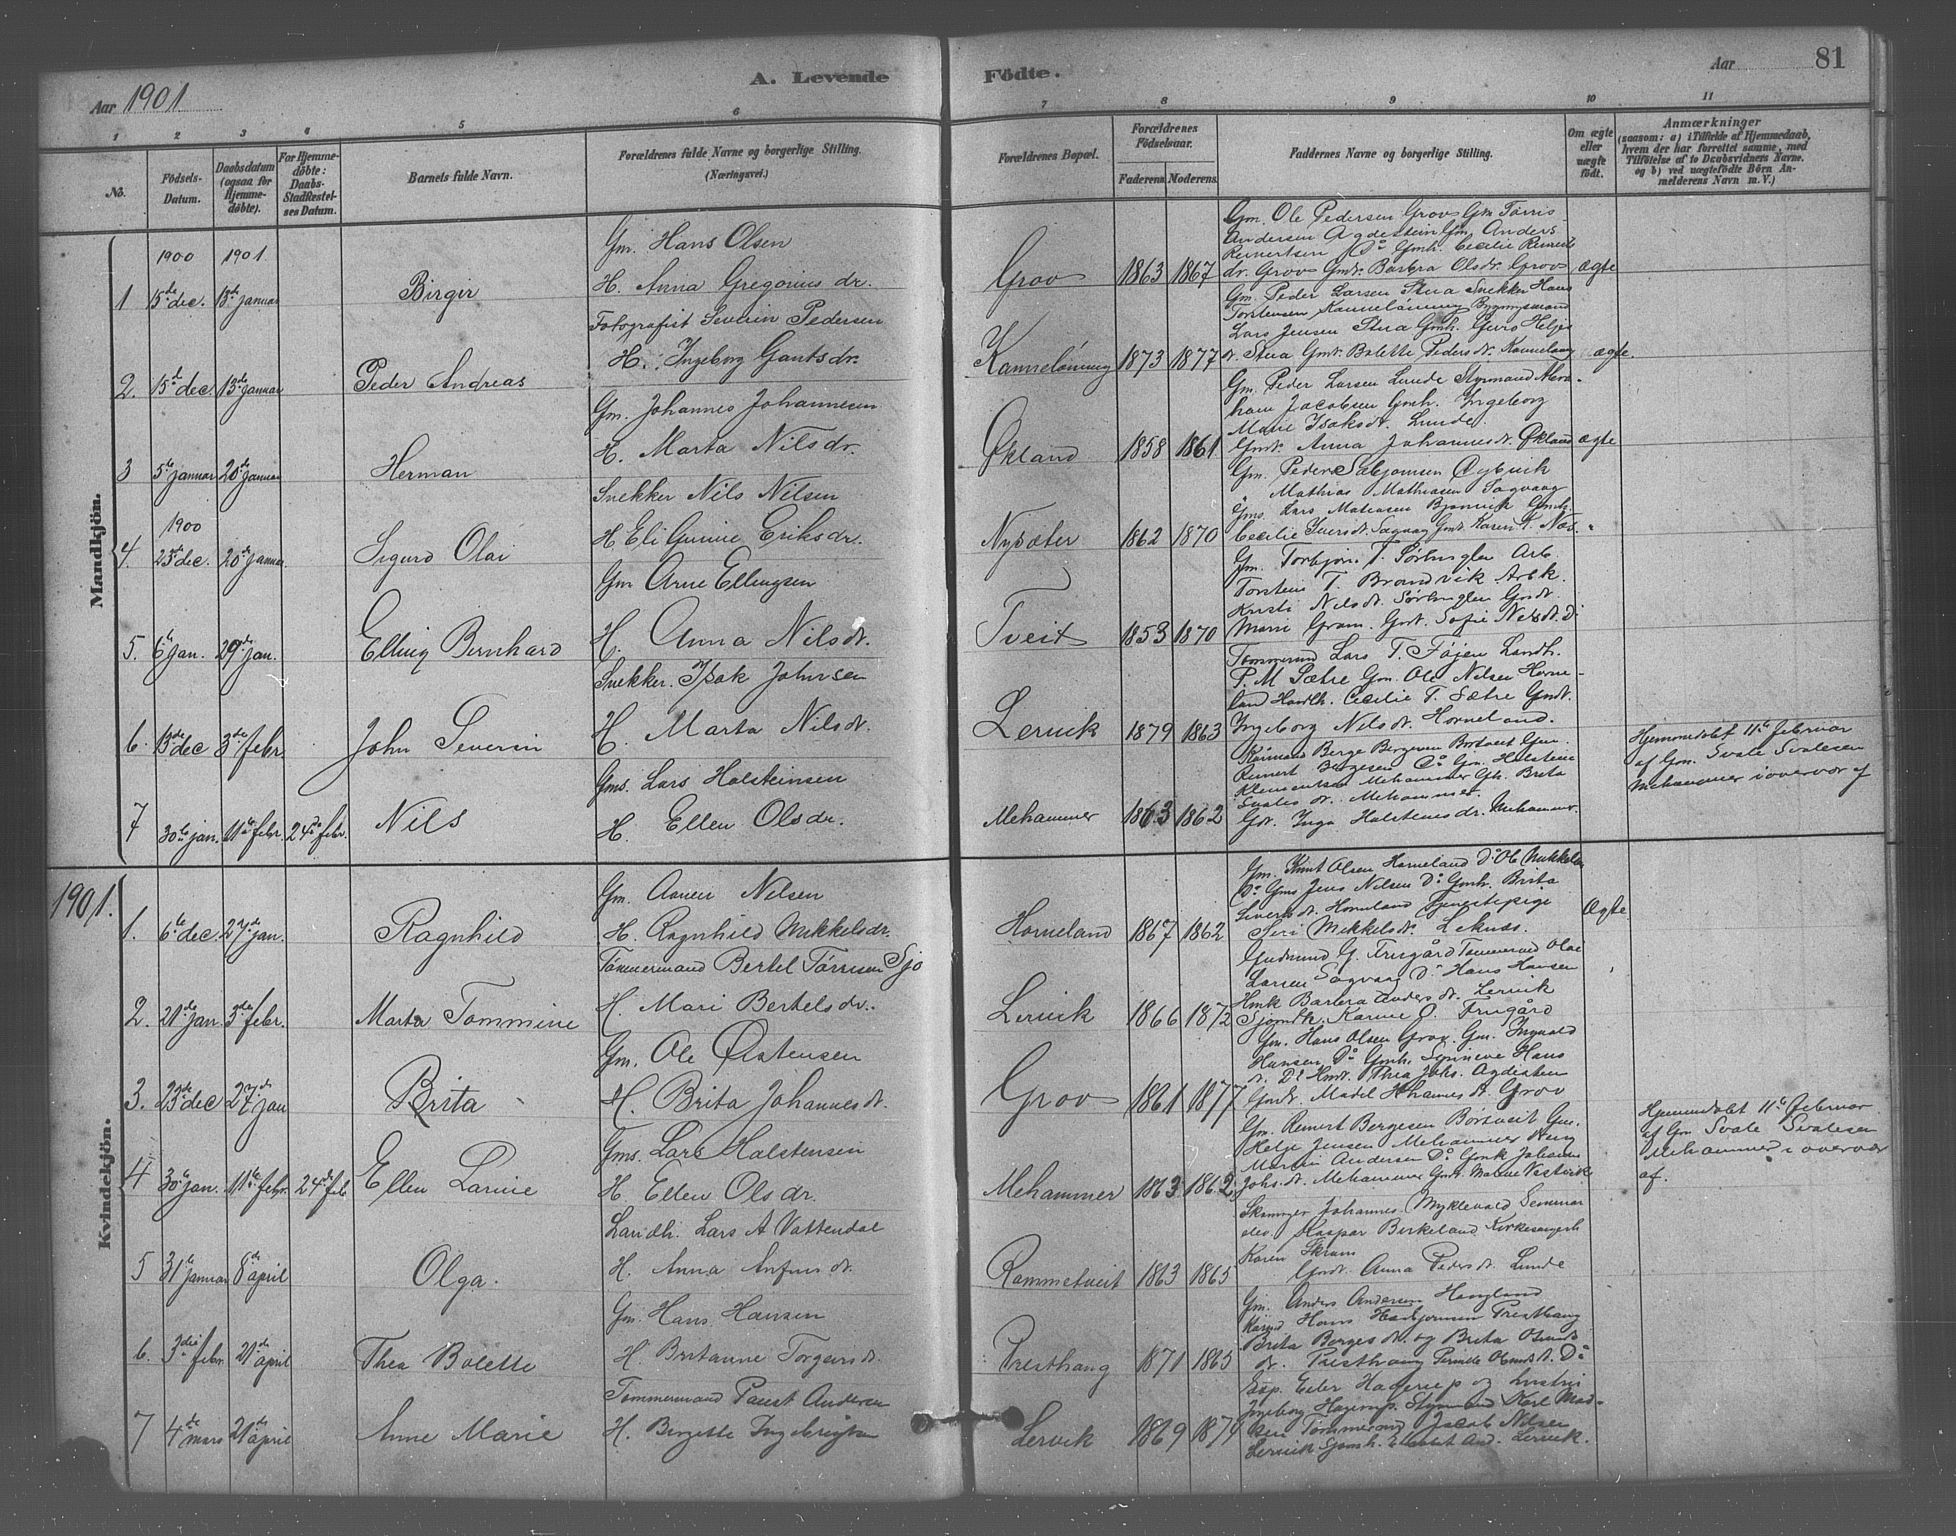 Aar 1901
A. Levende
Födte.
Aar
81
1
2
3
4
5
6
7
8
9
10
11
No.
Födsels-Datum.
Daabsdatum (ogsaa for Hjemmedöbte).
For Hjemmedöbte: Daabs-Stadfæstelses Datum.
Barnets fulde Navn.
Forældrenes fulde Navne og borgerlige Stilling.
(Næringsvei.)
Forældrenes Bopæl.
Forældrenes Födselsaar.
Faderens
Moderens
Faddernes Navne og borgerlige Stilling.
Om ægte eller uægte födt.
Anmærkninger
(saasom: a) i Tilfælde af Hjemmedaab, hvem der har forrettet samme, med Tilföielse af to Daabsvidners Navne. og b) ved uægtefödte Börn Anmelderens Navn m. V.)
Mandkjön.
1900 1901
1 15de dec. 13de januar Birger
Gm. Hans Olsen
H. Anna Gregorius dr.
Grov 1863 1867
Gm. Ole Pedersen Grov Gm Törris
Andersen Agdestein Gm. Anders
Reinertsen Do Gmh. Cecilie Reinert
dr. Grov Gmdr. Barbra Olsdr. Grov ægte
2. 15de dec. 13de januar Peder Andreas
Fotografist Severin Pedersen
H. Ingeborg Gautsdr.
1873 1877
Gm. Peder Larsen Stua Snekker Hans
Torstensen
Lars Jensen Stua Gmh. Guro Helje
dr. Stua Gmdr. Bolette Pedersdr. ægte.
3 5te januar 20de januar Herman
Gm. Johannes Johannesen
H. Marta Nilsdr.
Økland 1858 1861
Gm. Peder Larsen Lunde Styrmand Abra-
ham Jacobsen Gmh. Ingeborg
Marie Isaksdr. Lunde
Gmdr. Anna Johannesdr. Økland ægte
1900
4. 23de dec. 20de januar Sigurd Olai
Snekker Nils Nilsen
H. Eli Eriksdr.
Nysæter 1862 1870
Gm. Peder
Mathias Mathiasen Sagvaag
Gms. Lars Matiasen Gmh.
Cecilie Sagvaag Gmdr. Karen
5. 6te jan. 29de jan. Elling Bernhard
Gm Arne Ellingsen
H. Anna Nilsdr.
Tveit 1853 1870
Gm. Torbjörn T. Arb.
Torstein T. Brandvik Arbk.
Kristi Nilsdr. Gmdr.
Marie Gram. Gmdr. Sofie Nilsdr. Do
6. 13de dec 3de febr. John Severin
Snekker. Isak Johnsen
H. Marta Nilsdr.
Lervik 1879 1863
Tömmermd Lars T. Föjen Landh.
P. M. Sætre Gm. Ole Nilsen Horne-
land Handlh. Cecilie T. Sætre Gmdr.
Ingeborg Nilsdr. Horneland.
7 30te jan. 11te febr. 24de febr. Nils
Gms. Lars Halsteinsen
H. Ellen Olsdr.
Mehammer 1863 1862
Berge Bergesen Börtveit Gm
Reinert Bergesen Do Gm. Halstein
Klementsen Mehammer Gh. Brita
Svales dr. Mehammer
Gdr. Inga Halsteinsdr. Mehammer.
Hjemmedöbt 11te februar
af Gm. Svale Svalesen
Mehammer i overvær af
1901.
Kvindekjön.
1. 6te dec. 27de jan. Ragnhild
Gm. Nilsen
H. Ragnhild Mikkelsdr.
Horneland 1867 1862
Gm. Knut Olsen Horneland Do Ole Mikkelsen
Do Gms Jens Nilsen Do Gmh. Brita
Siversdr. Horneland Tjenestepige
Siri Mikkelsdr. Ægte
2. 21de jan. 3de febr. Marta Tommine
Tömmermand Bertel Törrisen Sjo
H. Mari Bertelsdr.
Lervik 1866 1872
Gudmund G. Frugård Tömmermd Olai
Larsen Sagvaag Do Hans Hansen
Hmk Barbra Andersdr. Lervik
Karine O. Frugård
3. 23de dec 27de jan Brita
Gm. Ole Østensen
H. Brita Johannesdr.
Grov 1861 1877
Gm. Hans Olsen Grov. Gm. Ingvald
Hansen Do Gmh. Hans
dr. Do Thea Johs. Agdestein
Gmdr. Madel Johannesdr. Grov
4 30te jan. 11te febr. 24de feb Ellen Larine
Gms. Lars Halsteinsen
H. Ellen Olsdr.
Mehammer 1863 1862
Gm. Reinert Bergesen Börtveit Gm.
Helje Jensen Mehammer
Martin Andersen Do Gmk
Johs.dr. Mehammer Gmdr.
Hjemmedöbt 11te februar
af Gm Svale Svalesen
Mehammer i overvær
af.
5 31te januar 8de april Olga.
Landh. Lars A Vattendal
H. Anna Anfinsdr.
Rommetveit 1863 1865
Johannes Myklevold Seminar
elev. Kaspar Birkeland Kirkesangerh
Karen Skram
Gmdr. Anna Pedersdr. Lunde
6. 3die febr. 21de april Thea Bolette
Gm. Hans Hansen
H. Britanne Torgeirsdr.
Presthaug 1871 1865
Gm. Anders Andersen Haugland
Hans Presthaug
Brita Bergesdr. og Brita
dr. Presthaug Pernille dr. Do
7 4de mars 21de april Anne Marie
Tömmermand Paust Andersen
H. Bergette Ingebrigtsen
Lervik 1869 1874
Exp. Eiler Hagerup og hustru
Ingeborg Hagerup. Styrmand Karl Mad-
sen Tömmermd Jacob Nilsen
Lervik Elisabet And. Lervik.